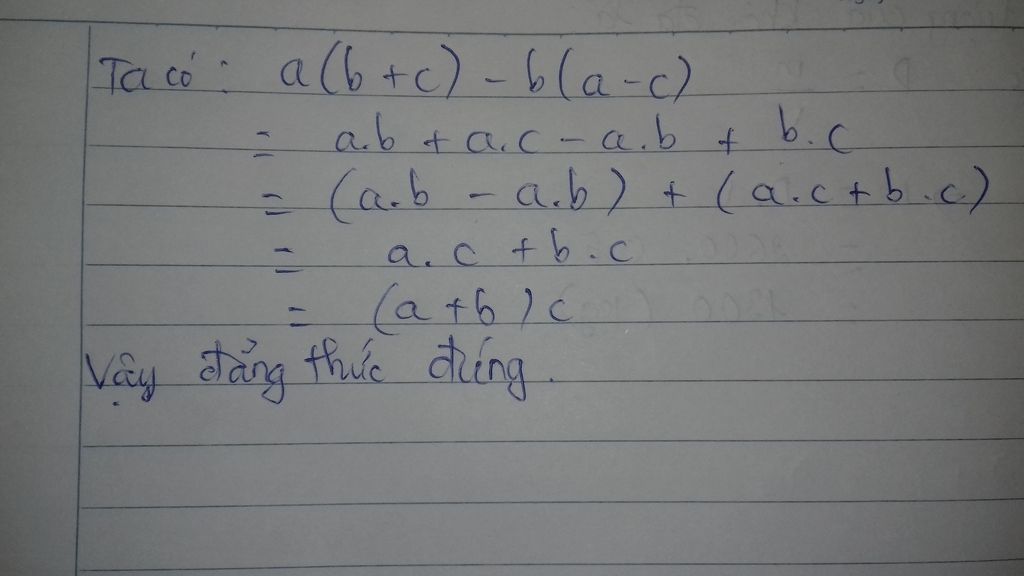 Ta có: a(b+c) - b(a-c)
= a.b + a.c - a.b + b.c
= (a.b - a.b) + (a.c + b.c)
= a.c + b.c
= (a+b)c
Vậy đẳng thức đúng.